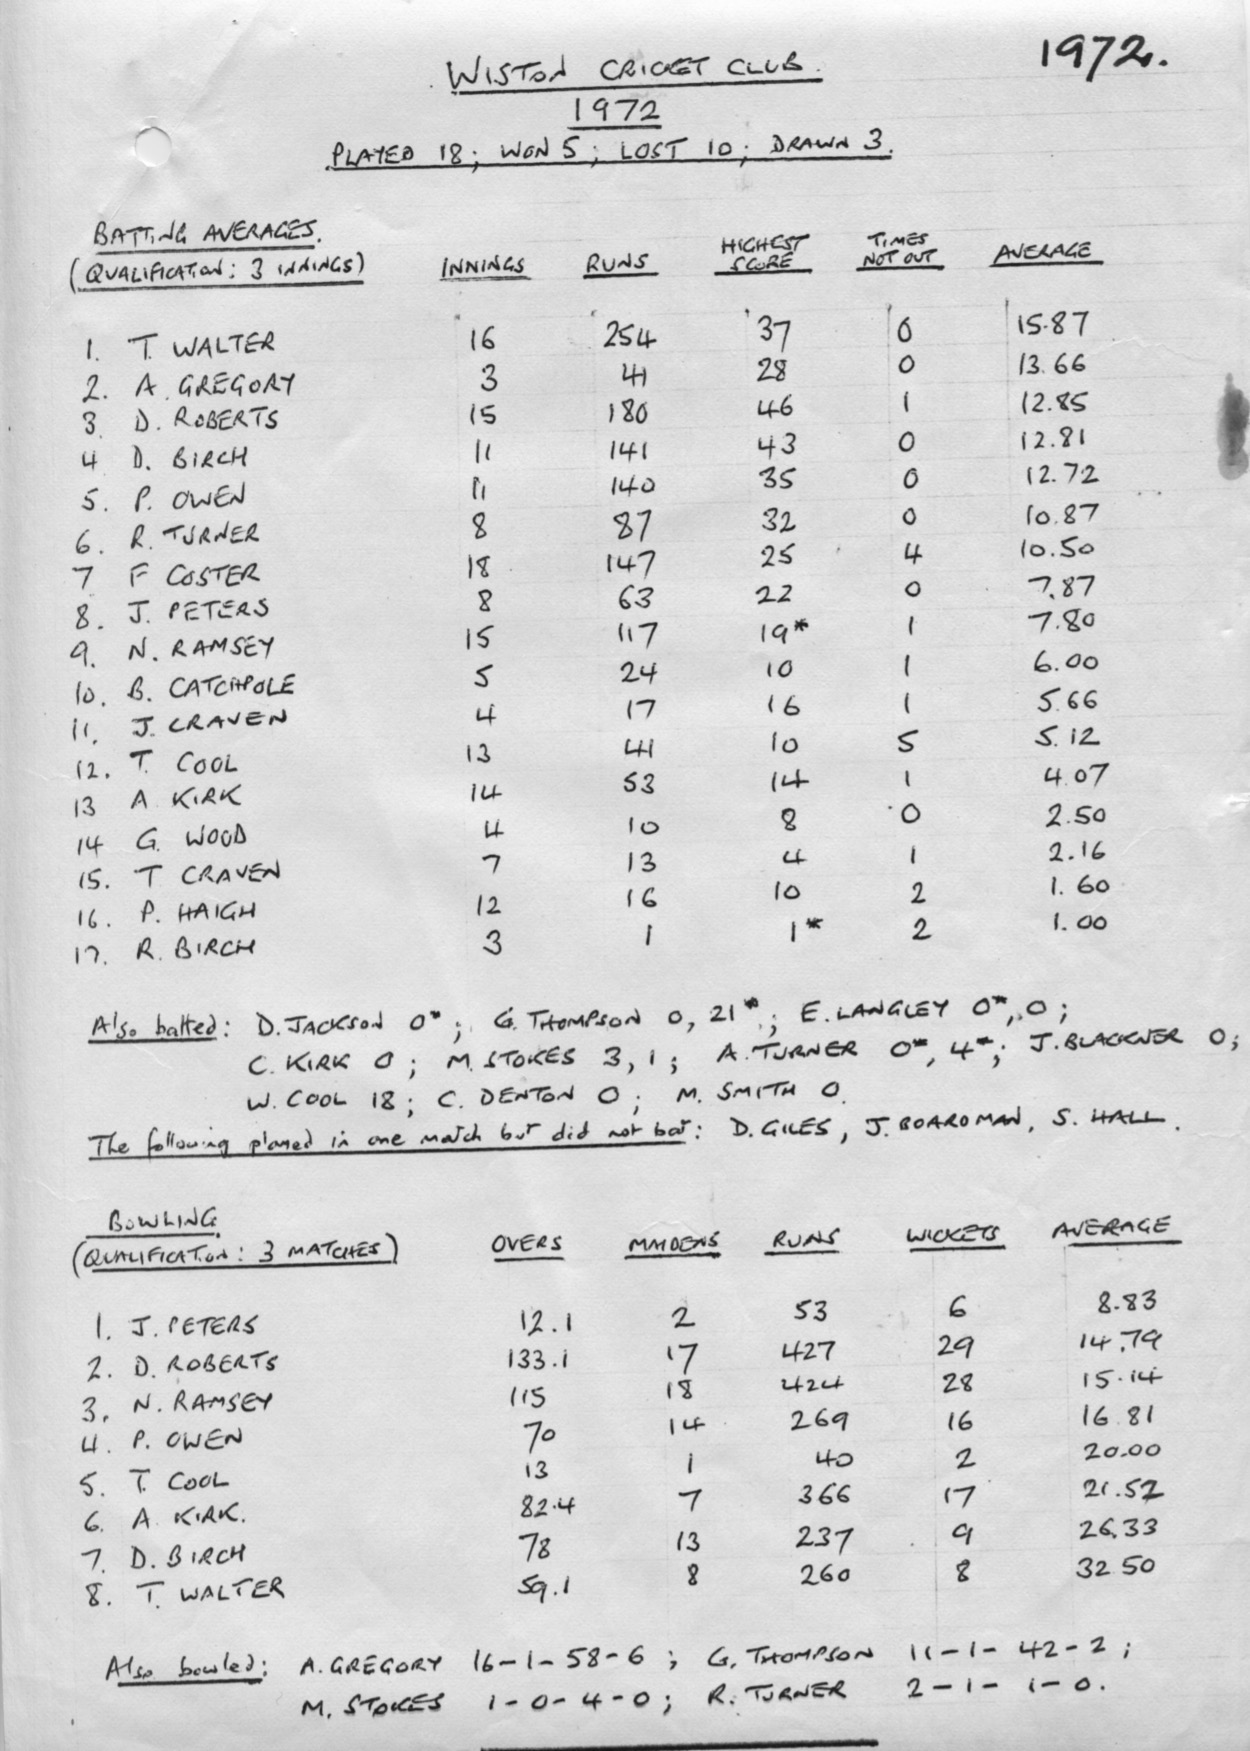 1972.
WISTON CRICKET CLUB.
1972
PLAYED 18; WON 5; LOST 10; DRAWN 3.
BATTING AVERAGES.
(QUALIFICATION: 3 INNINGS) INNINGS RUNS HIGHEST SCORE TIMES NOT OUT AVERAGE
1. T. WALTER 16 254 37 0 15.87
2. A. GREGORY 3 41 28 0 13.66
3. D. ROBERTS 15 180 46 1 12.85
4 D. BIRCH 11 141 43 0 12.81
5. P. OWEN 11 140 35 0 12.72
6. R. TURNER 8 87 32 0 10.87
7 F COSTER 18 147 25 4 10.50
8. J. PETERS 8 63 22 0 7.87
9. N. RAMSEY 15 117 19* 1 7.80
10. B. CATCHPOLE 5 24 10 1 6.00
11. J. CRAVEN 4 17 16 1 5.66
12. T. COOL 13 41 10 5 5.12
13 A KIRK 14 53 14 1 4.07
14 G. WOOD 4 10 8 0 2.50
15. T CRAVEN 7 13 4 1 2.16
16. P. HAIGH 12 16 10 2 1.60
17. R. BIRCH 3 1 1* 2 1.00
Also batted: D. JACKSON 0*; G. THOMPSON 0, 21*; E. LANGLEY 0*, 0;
C. KIRK 0; M. STOKES 3, 1; A. TURNER 0*, 4*; J. BLACKNER 0;
W. COOL 18; C. DENTON 0; M. SMITH 0.
The following played in one match but did not bat: D. GILES, J. BOARDMAN, S. HALL.
BOWLING
(QUALIFICATION: 3 MATCHES) OVERS MAIDENS RUNS WICKETS AVERAGE
1. J. PETERS 12.1 2 53 6 8.83
2. D. ROBERTS 133.1 17 427 29 14.79
3. N. RAMSEY 115 18 424 28 15.14
4. P. OWEN 70 14 269 16 16.81
5. T. COOL 13 1 40 2 20.00
6. A KIRK. 82.4 7 366 17 21.52
7. D. BIRCH 78 13 237 9 26.33
8. T. WALTER 59.1 8 260 8 32.50
Also bowled: A. GREGORY 16-1-58-6; G. THOMPSON 11-1-42-2;
M. STOKES 1-0-4-0; R. TURNER 2-1-1-0.